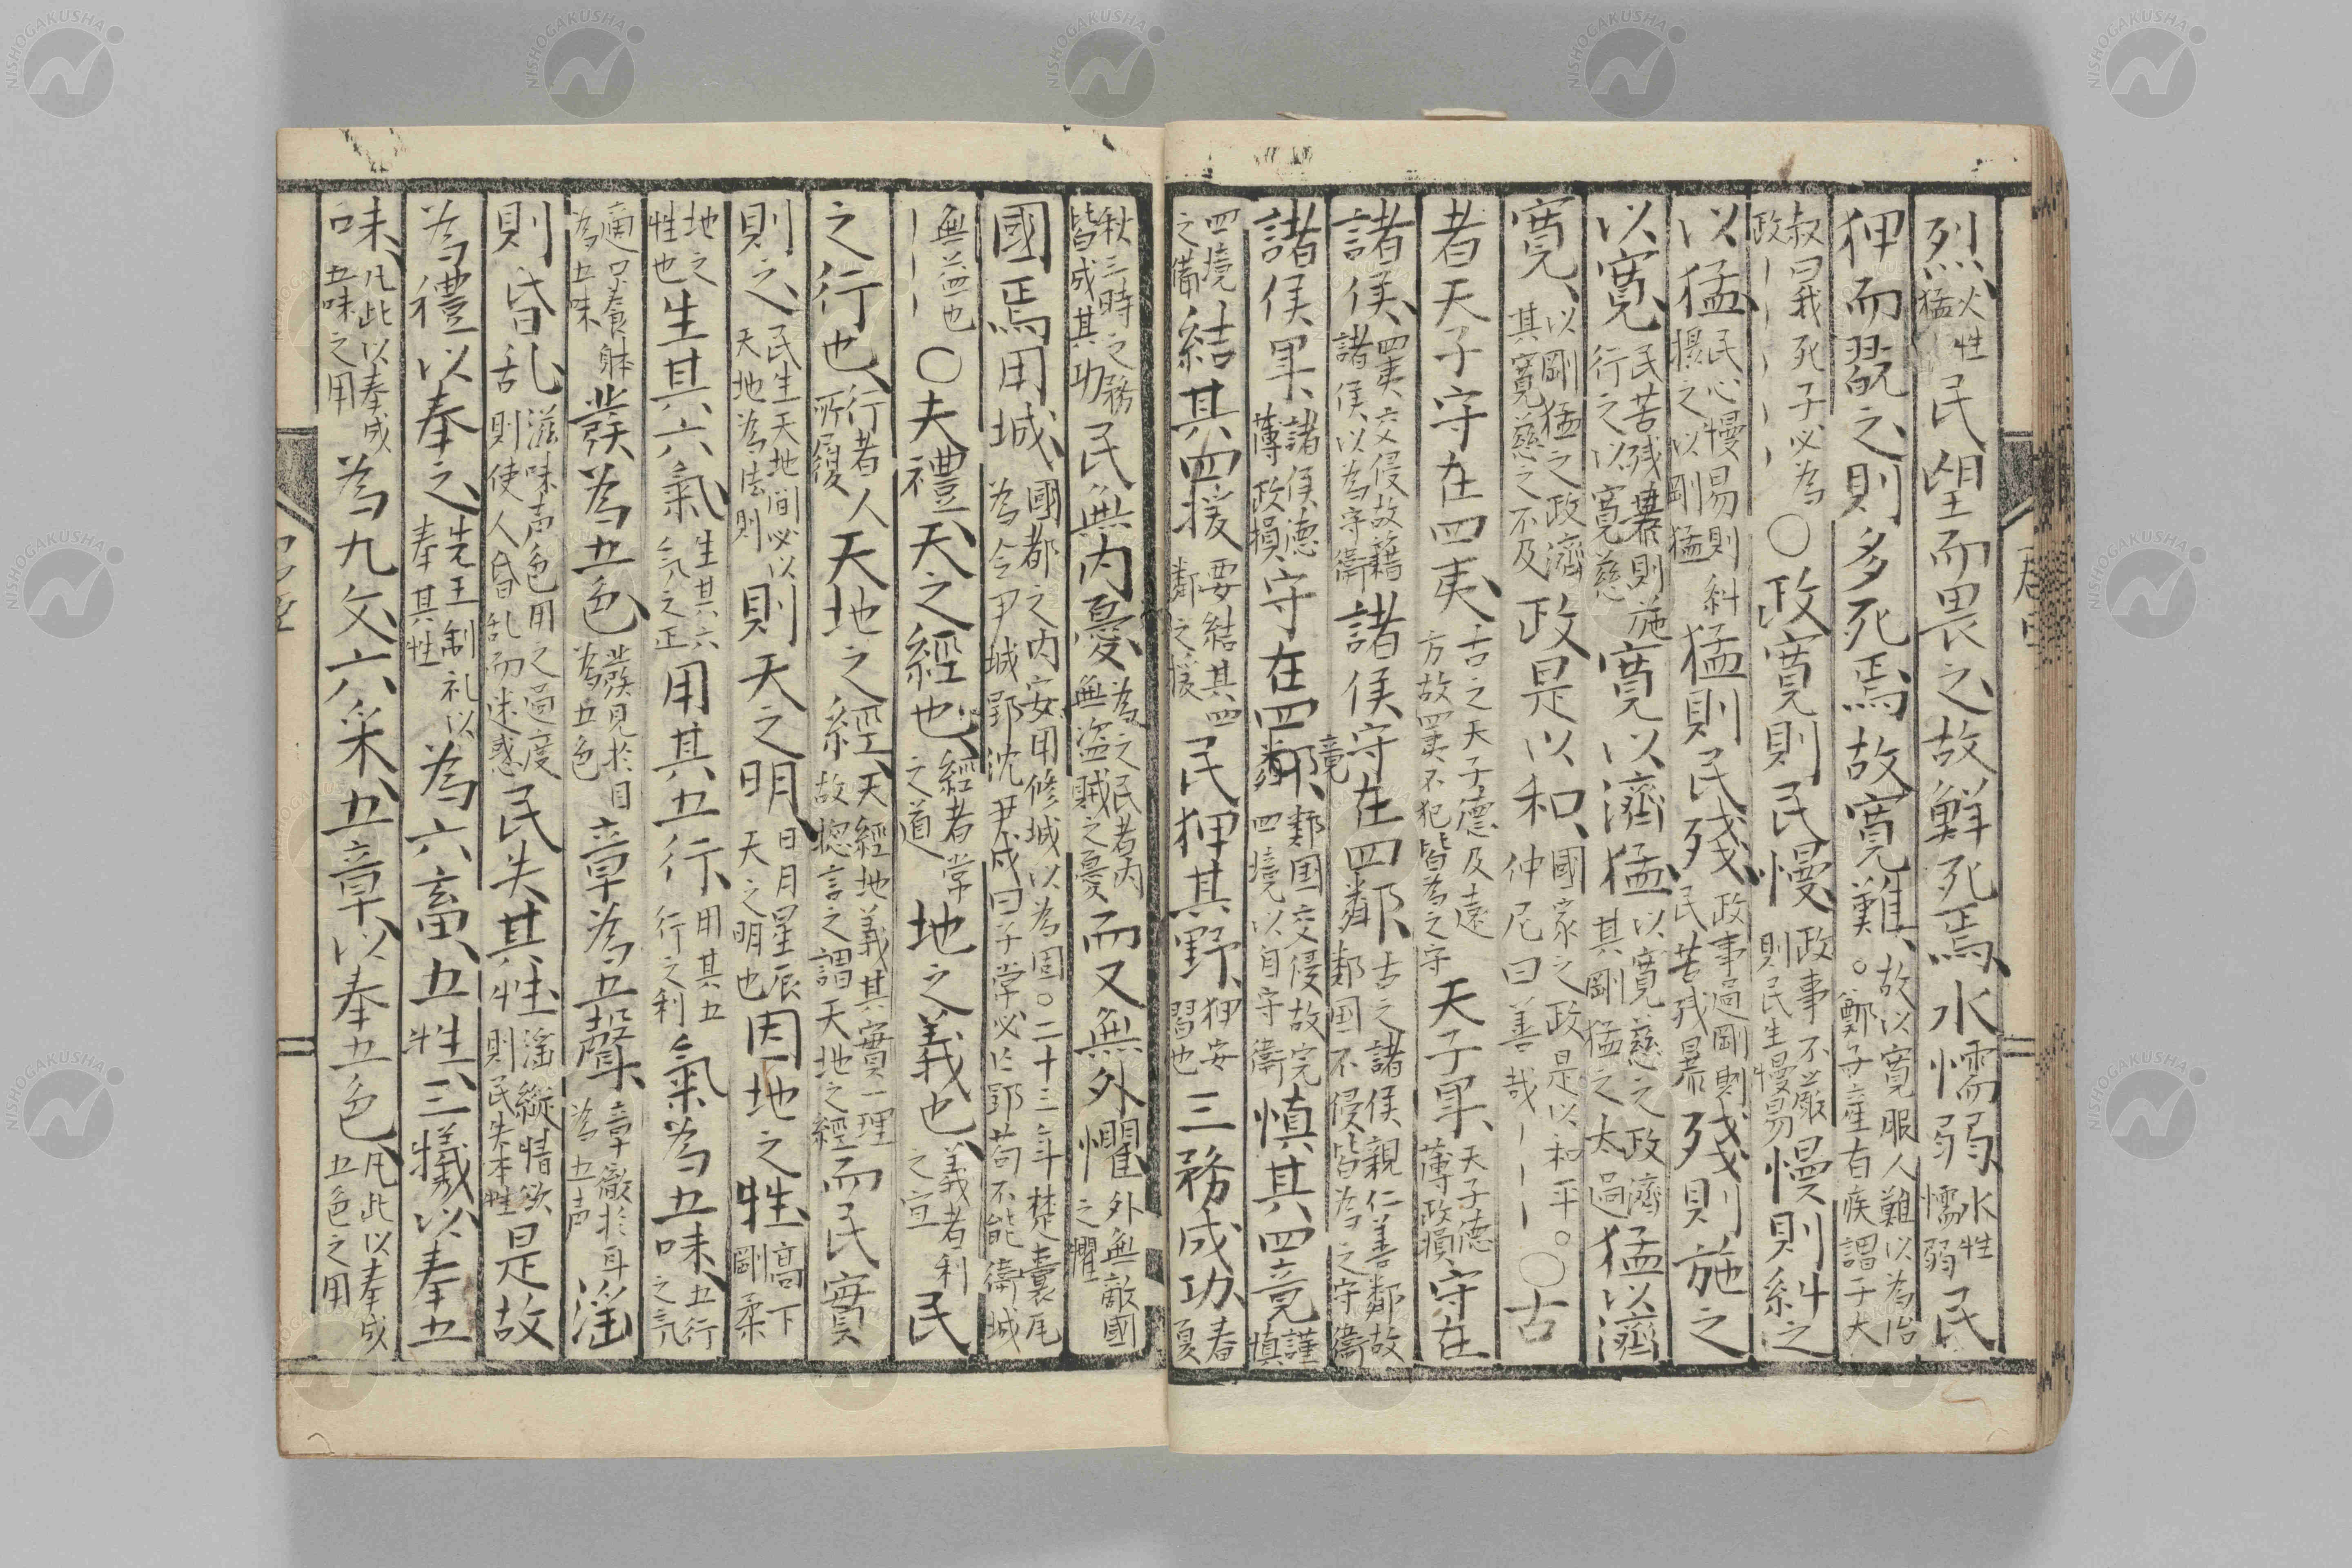 烈、火性猛民望而畏之、故鮮死焉、水懦弱、水性懦弱民
狎而翫之、則多死焉、故寛難、故以寛服人難以為治。鄭子産有疾謂子大
叔曰我死子必為政｜｜｜｜｜〇政寛則民慢、政事不厳則民生慢易慢則糾之
以猛、民心慢易則糾摂之以剛猛猛則民残、政事過剛則民苦残暴残則施之
以寛、民苦残暴則施行之以寛慈寛以濟猛、以寛慈之政濟其剛猛之太過猛以濟
寛、以剛猛之政濟其寛慈之不及政是以和、國家之政是以和平。仲尼曰善哉｜｜｜〇古
者天子守在四夷、古之天子德及遠方故四夷不犯皆為之守天子卑、天子德薄政損守在
諸侯、四夷交侵故藉諸侯以為守衛諸侯守在四鄰、古之諸侯親仁善鄰故鄰国不侵皆為之守衛
諸侯卑、諸侯德薄政損守在四竟鄰国交侵故完四境以自守衛慎其四竟謹慎
四境之備結其四援要結其四鄰之援民狎其野、狎安習也三務成功、春夏
秋三時之務皆成其功民無内憂、為之民者内無盜賊之憂而又無外懼外無敵國之懼
國焉用城、國都之内安用修城以為固。二十三年楚囊瓦為令尹城郢沈尹戌曰子常必亡郢苟不能衛城
無益也｜｜〇夫禮、天之經也、經者常之道地之義也、義者利之宜民
之行也、行者人所履天地之經、天經地義其實一理故揔言之謂天地之經而民實
則之、民生天地間必以天地為法則則天之明、日月星辰天之明也因地之性、高下剛柔
地之性也生其六氣、生其六气之正用其五行、用其五行之利氣為五味、五行之气
適口養躰為五味發為五色、發見於目為五色章為五聲、章徹於耳為五声淫
則昏乱、滋味声色用之過度則使人昏乱而迷惑民失其性、淫縦情欲則民失本性是故
為禮以奉之、先王制礼以奉其性為六畜、五牲、三犠以奉五
味、凡此以奉成五味之用為九文、六采、五章、以奉五色、凡此以奉成五色之用